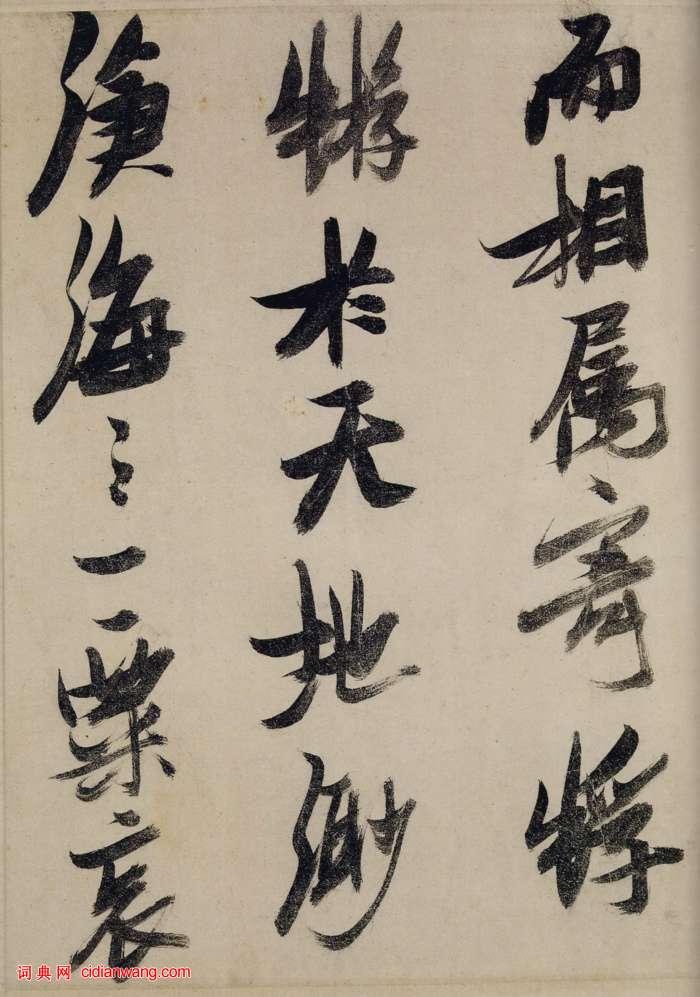 而相属寄蜉
蝣於天地渺
滄海之一粟哀
词典网 cidianwang.com